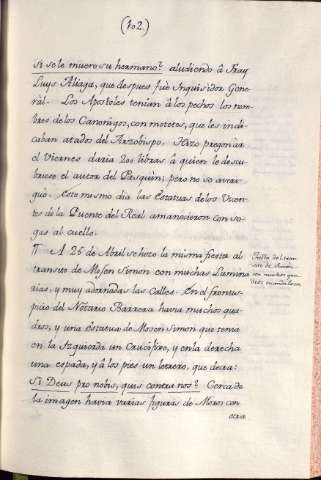 (102)
si se le muere su hermano? aludiendo â Fray
Luys Aliaga, que despues fuè Inquisidor Gene-
ràl. Los Apostoles tenian â los pechos los nom-
bres de los Canonigos, con motetes, que les indi-
caban atados del Arzobispo. Hizo pregonar
el Viernes daria 200 libras â quien le descu-
briese el autor del Pasquin; pero no se avari-
guò. Este mismo dia las Estatuas de los Vicen-
tes de la Puente del Real amanecieron con so-
gas al cuello.
¶ A 25 de Abril se hizo la misma fiesta al
transito de Mosen Simon con muchas Lumina-
rias, y muy adornadas las Calles. En el frontis-
picio del Notario Barrera havia muchos qua-
dros, y una Estatua de Mosen Simon que tenia
en la Izquierda un Crucifixo, y en la derecha
una espada, y â los pies un letrero, que decia:
Si Deus pro nobis, quis contra nos? Cerca de
la imagen havia varias figuras de Moros con
otra
Fiesta del tran-
sito de Simon
con muchos que